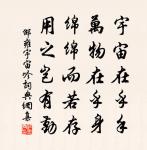 宇宙在乎手
萬物在乎身
綿綿而若存
用之豈有勤
邵雍宇宙吟詞典網集